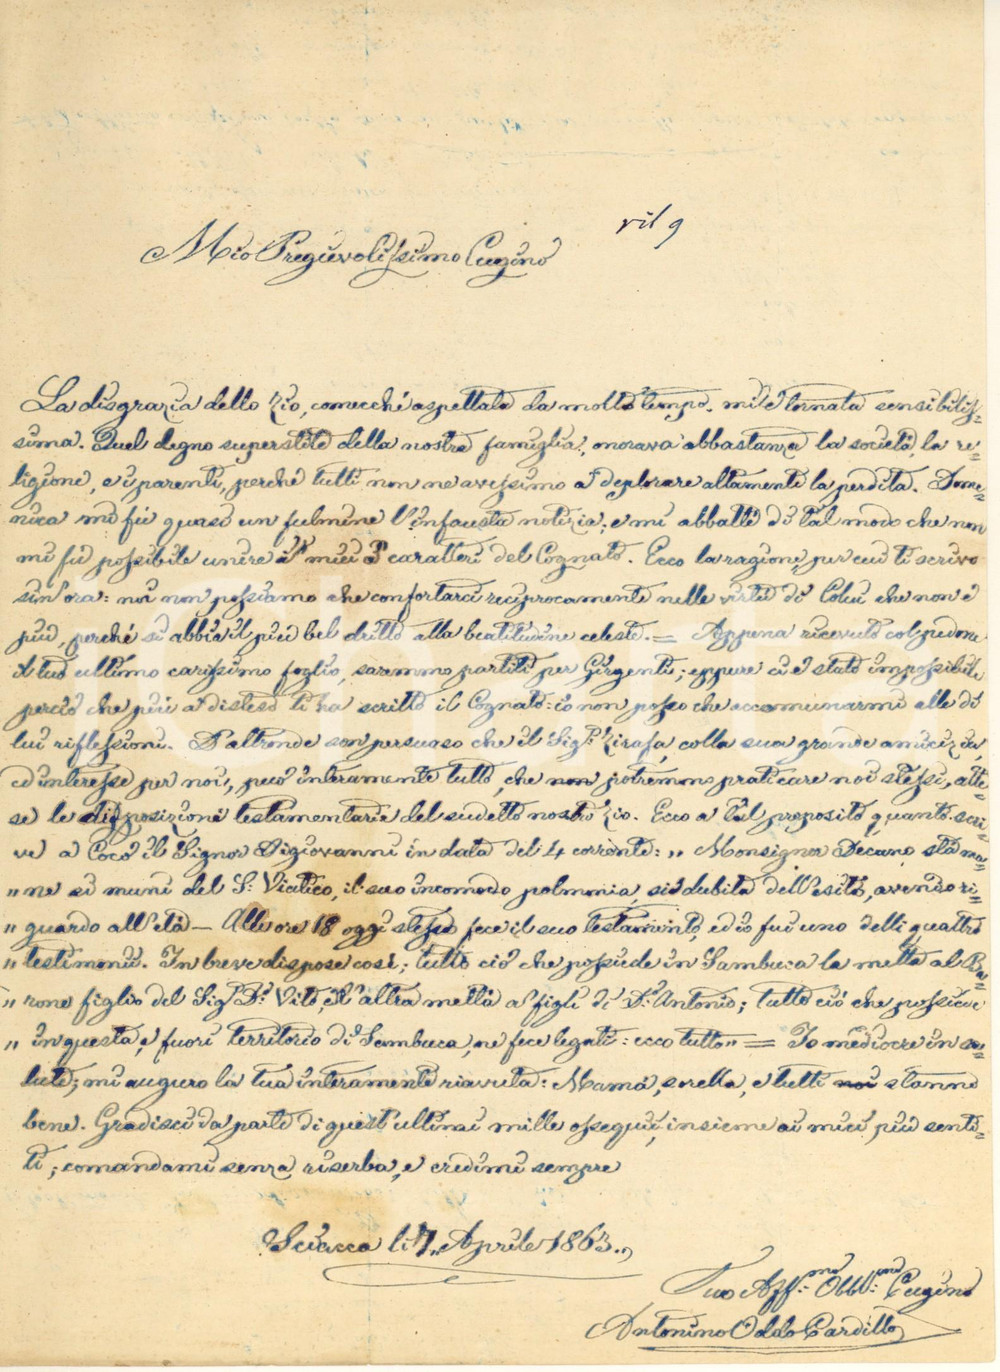 ril 9
Mio Pregievolissimo Cugino
La disgrazia dello Zio, comecché aspettata da molto tempo, mi è tornata sensibilis-
sima. Quel degno superstite della nostra famiglia, onorava abbastanza la società, la re-
ligione, e i parenti, perché tutti non ne avessimo a deplorare altamente la perdita. Dome-
nica mi fù quasi un fulmine l'infausta notizia, e mi abbatté di tal modo che non
mi fù possibile unire i miei caratteri del Cognato. Ecco la ragione per cui ti scrivo
sin'ora: noi non possiamo che confortarci reciprocamente nelle virtù di Colui che non è
più, perché si abbia il più bel dritto alla beatitudine celeste. = Appena ricevuto col pedone
il tuo ultimo carissimo foglio, saremmo partiti per Girgenti; eppure ci è stato impossibile
perciò che più a disteso ti ha scritto il Cognato: io non posso che accomunarmi alle di
lui riflessioni. D'altronde son persuaso che il Sig.r Zirafa, colla sua grande amicizia,
ed interesse per noi, può interamente tutto, che non potremmo praticare noi stessi, atte-
se le disposizioni testamentarie del sudetto nostro Zio. Ecco a tal proposito quanto scri-
ve a Cocò il Signor Digiovanni in data del 4 corrente: „ Monsignor Decano stama-
„ ne si munì del S. Viatico, il suo incomodo polmonia, si dubita dell'esito, avendo ri-
„ guardo all'età — Alle ore 18 oggi stesso fece il suo testamento, ed io fui uno delli quattro
„ testimonii. In breve dispose così; tutto ciò che possiede in Sambuca la mettà al Ba-
„ rone figlio del Sig.r D.r Vito, e l'altra mettà a' figli di D.r Antonio; tutto ciò che possiede
„ in questa, e fuori territorio di Sambuca, ne fece legati: ecco tutto „ = Io mediocre in sa-
lute; mi auguro la tua interamente riavuta: Mamà, sorella, e tutti noi stanno
bene. Gradisci da parte di quest'ultimi mille ossequii, insieme ai miei più senti-
ti; comandami senza riserba, e credimi sempre
Sciacca li 7„ Aprile 1863.„
Tuo Aff.mo Obb.mo Cugino
Antonino Oddo Cardillo